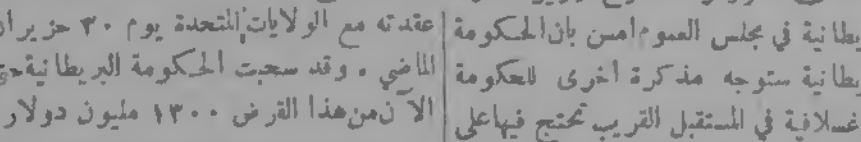 يطانية في مجلس العموم امس بان الحكومة
يطانية ستوجه مذكرة اخرى للحكومة
غسلافية في المستقبل القريب تحتج فيها على
عقدته مع الولايات المتحدة يوم ٣٠ حزيران
الماضي . وقد سحبت الحكومة البريطانية حتى
الآن من هذا القرض ١٣٠٠ مليون دولار